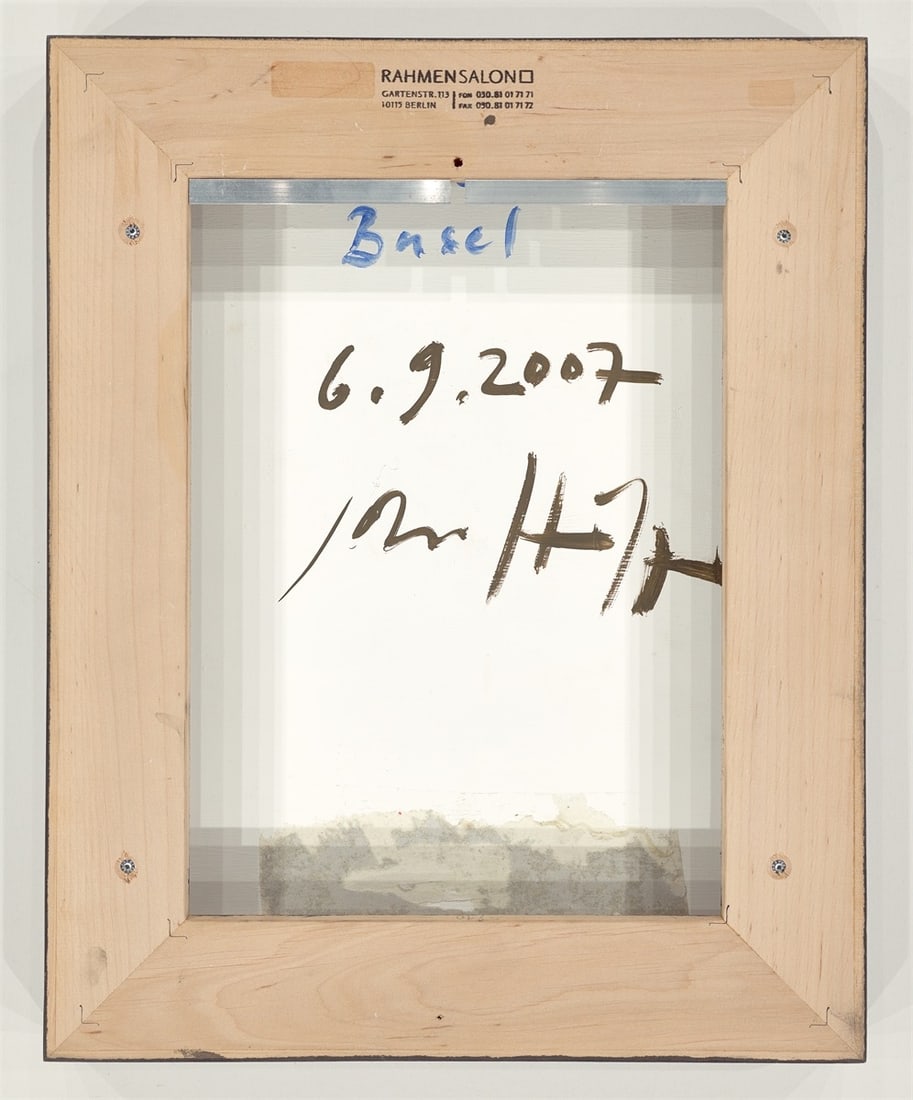 RAHMENSALON
GARTENSTR. 113 FON 030.81 01 71 71
10115 BERLIN FAX 030.81 01 71 72
Basel
6.9.2007